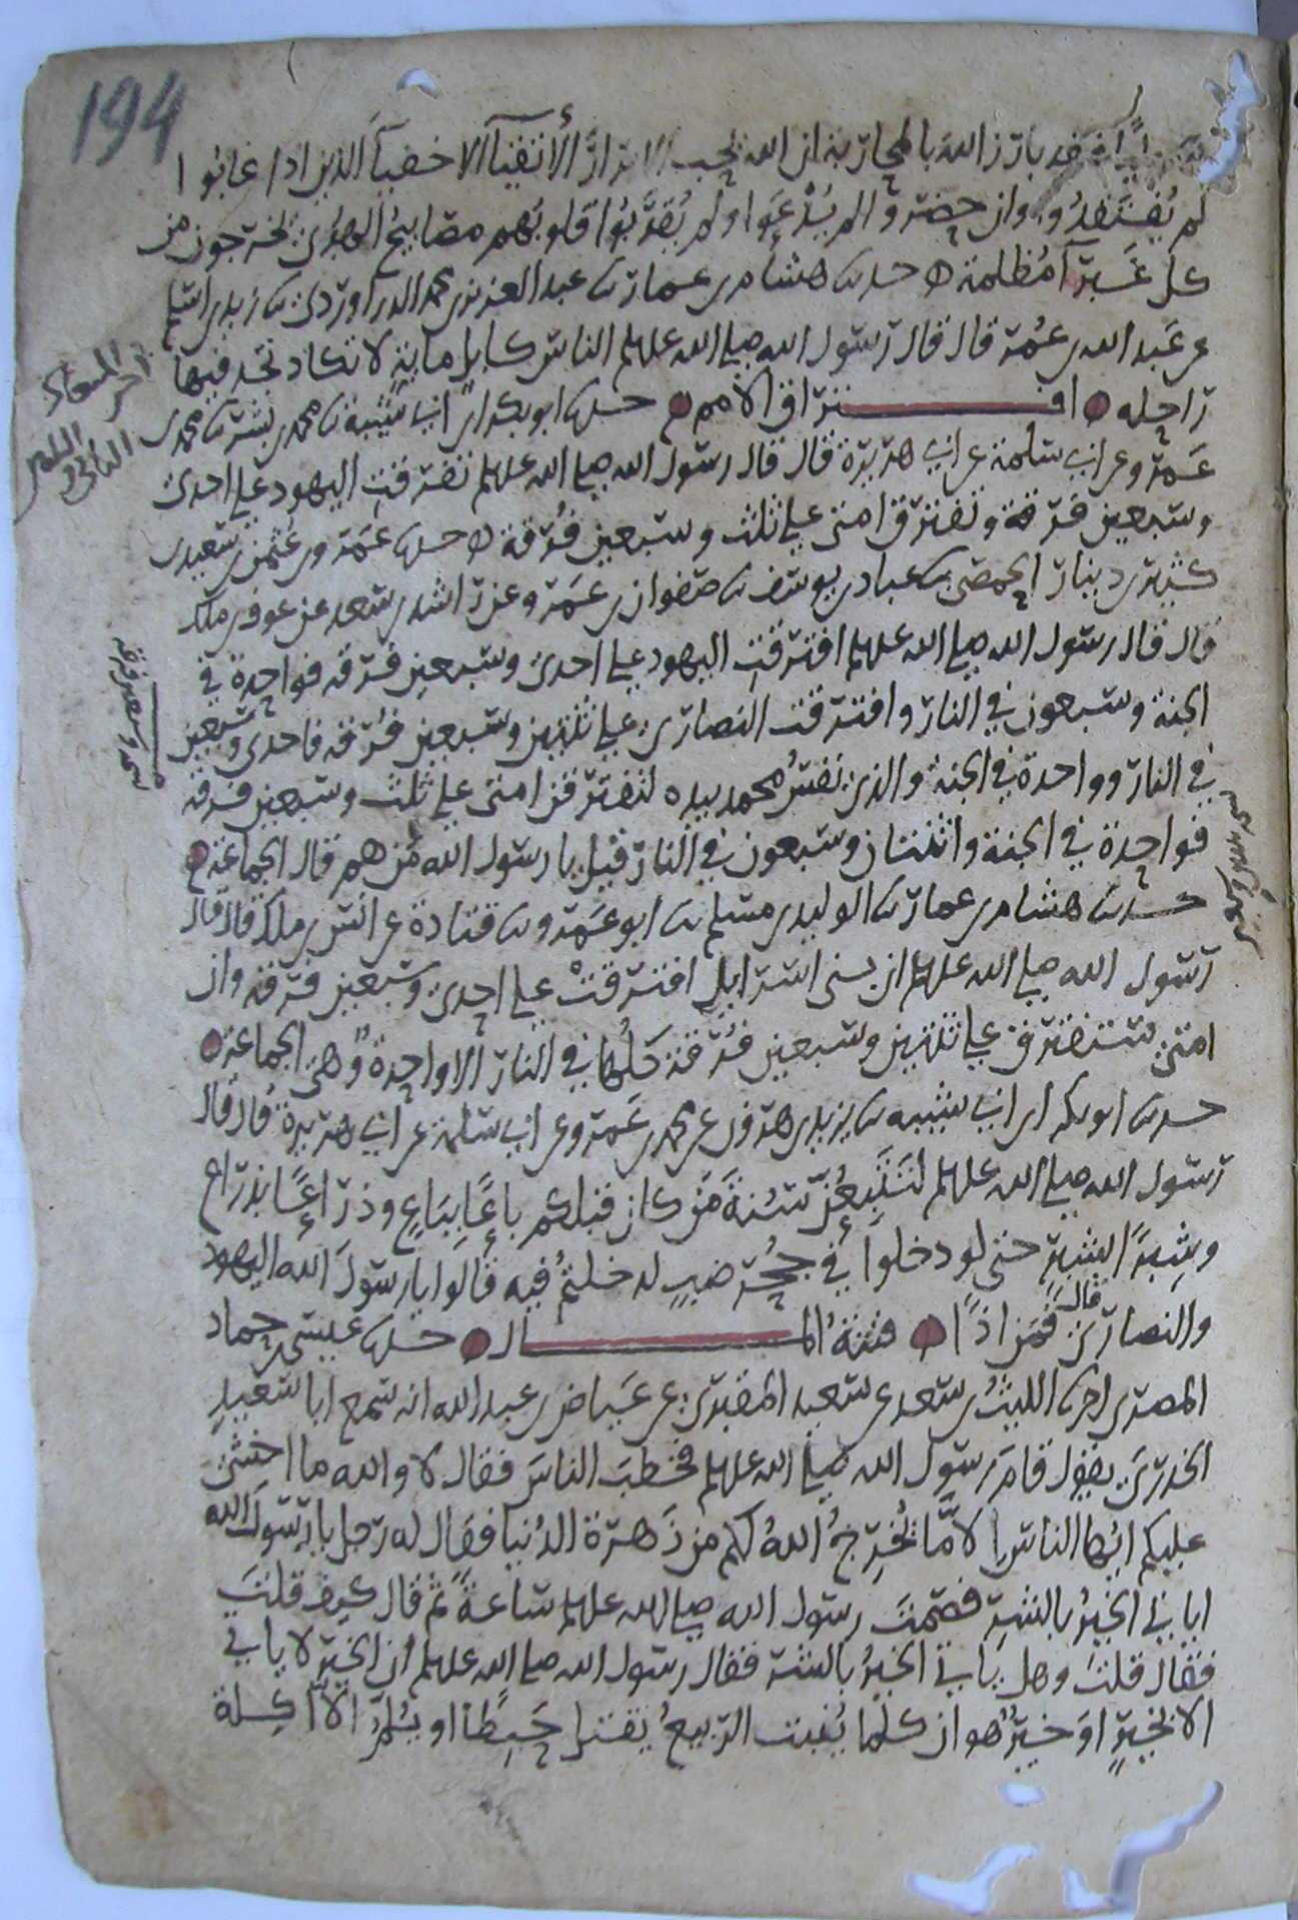 194
فقد بارز الله بالمحاربة ان الله يحب الابرار الأتقيآ الاخفيآ الذين اذا غابوا
لم يفتقدوا وان حضروا لم يدعوا ولم يقربوا قلوبهم مصابيح الهدى يخرجون من
كل غبرآ مظلمة حدثنا هشام بن عمار ثنا عبد العزيز بن محمد الدراوردى ثنا زيد بن اسلم
عن عبد الله بن عمر قال قال رسول الله صلى الله عليه وسلم الناس كابل ماية لا تكاد تجد فيها
راحلة افتراق الامم حدثنا ابو بكر ابن ابى شيبة ثنا محمد بن بشر ثنا محمد بن
عمرو عن ابى سلمة عن ابى هريرة قال قال رسول الله صلى الله عليه وسلم تفرقت اليهود على احدى
وسبعين فرقة وتفترق امتى على ثلث وسبعين فرقة حدثنا عمرو بن عثمن بن سعيد بن
كثير بن دينار الحمصى ثنا عباد بن يوسف ثنا صفوان بن عمرو عن راشد بن سعد عن عوف بن ملك
قال قال رسول الله صلى الله عليه وسلم افترقت اليهود على احدى وسبعين فرقة فواحدة فى
الجنة وسبعون فى النار وافترقت النصارى على ثنتين وسبعين فرقة فاحدى وسبعين
فى النار وواحدة فى الجنة والذى نفس محمد بيده لتفترقن امتى على ثلث وسبعين فرقة
فواحدة فى الجنة واثنتان وسبعون فى النار قيل يا رسول الله من هم قال الجماعة
حدثنا هشام بن عمار ثنا الوليد بن مسلم ثنا ابو عمرو ثنا قتادة عن انس بن ملك قال قال
رسول الله صلى الله عليه وسلم ان بنى اسرايل افترقت على احدى وسبعين فرقة وان
امتى ستفترق على ثنتين وسبعين فرقة كلها فى النار الا واحدة وهى الجماعة
حدثنا ابو بكر ابن ابى شيبة ثنا يزيد بن هرون عن محمد بن عمرو عن ابى سلمة عن ابى هريرة قال قال
رسول الله صلى الله عليه وسلم لتتبعن سنة من كان قبلكم باعًا بباع وذراعًا بذراع
وشبرًا بشبر حتى لو دخلوا فى جحر ضب لدخلتم فيه قالوا يا رسول الله اليهود
والنصارى قال فمن اذًا فتنة المال حدثنا عيسى بن حماد
المصرى اخبرنا الليث بن سعد عن سعيد المقبرى عن عياض بن عبد الله انه سمع ابا سعيد
الخدرى يقول قام رسول الله صلى الله عليه وسلم فخطب الناس فقال لا والله ما اخشى
عليكم ايها الناس الا ما يخرج الله لكم من زهرة الدنيا فقال له رجل يا رسول الله
اياتى الخير بالشر فصمت رسول الله صلى الله عليه وسلم ساعة ثم قال كيف قلت
فقال قلت وهل ياتى الخير بالشر فقال رسول الله صلى الله عليه وسلم ان الخير لا ياتى
الا بخير او خير هو ان كلما ينبت الربيع يقتل حبطًا او يلم الا آكلة